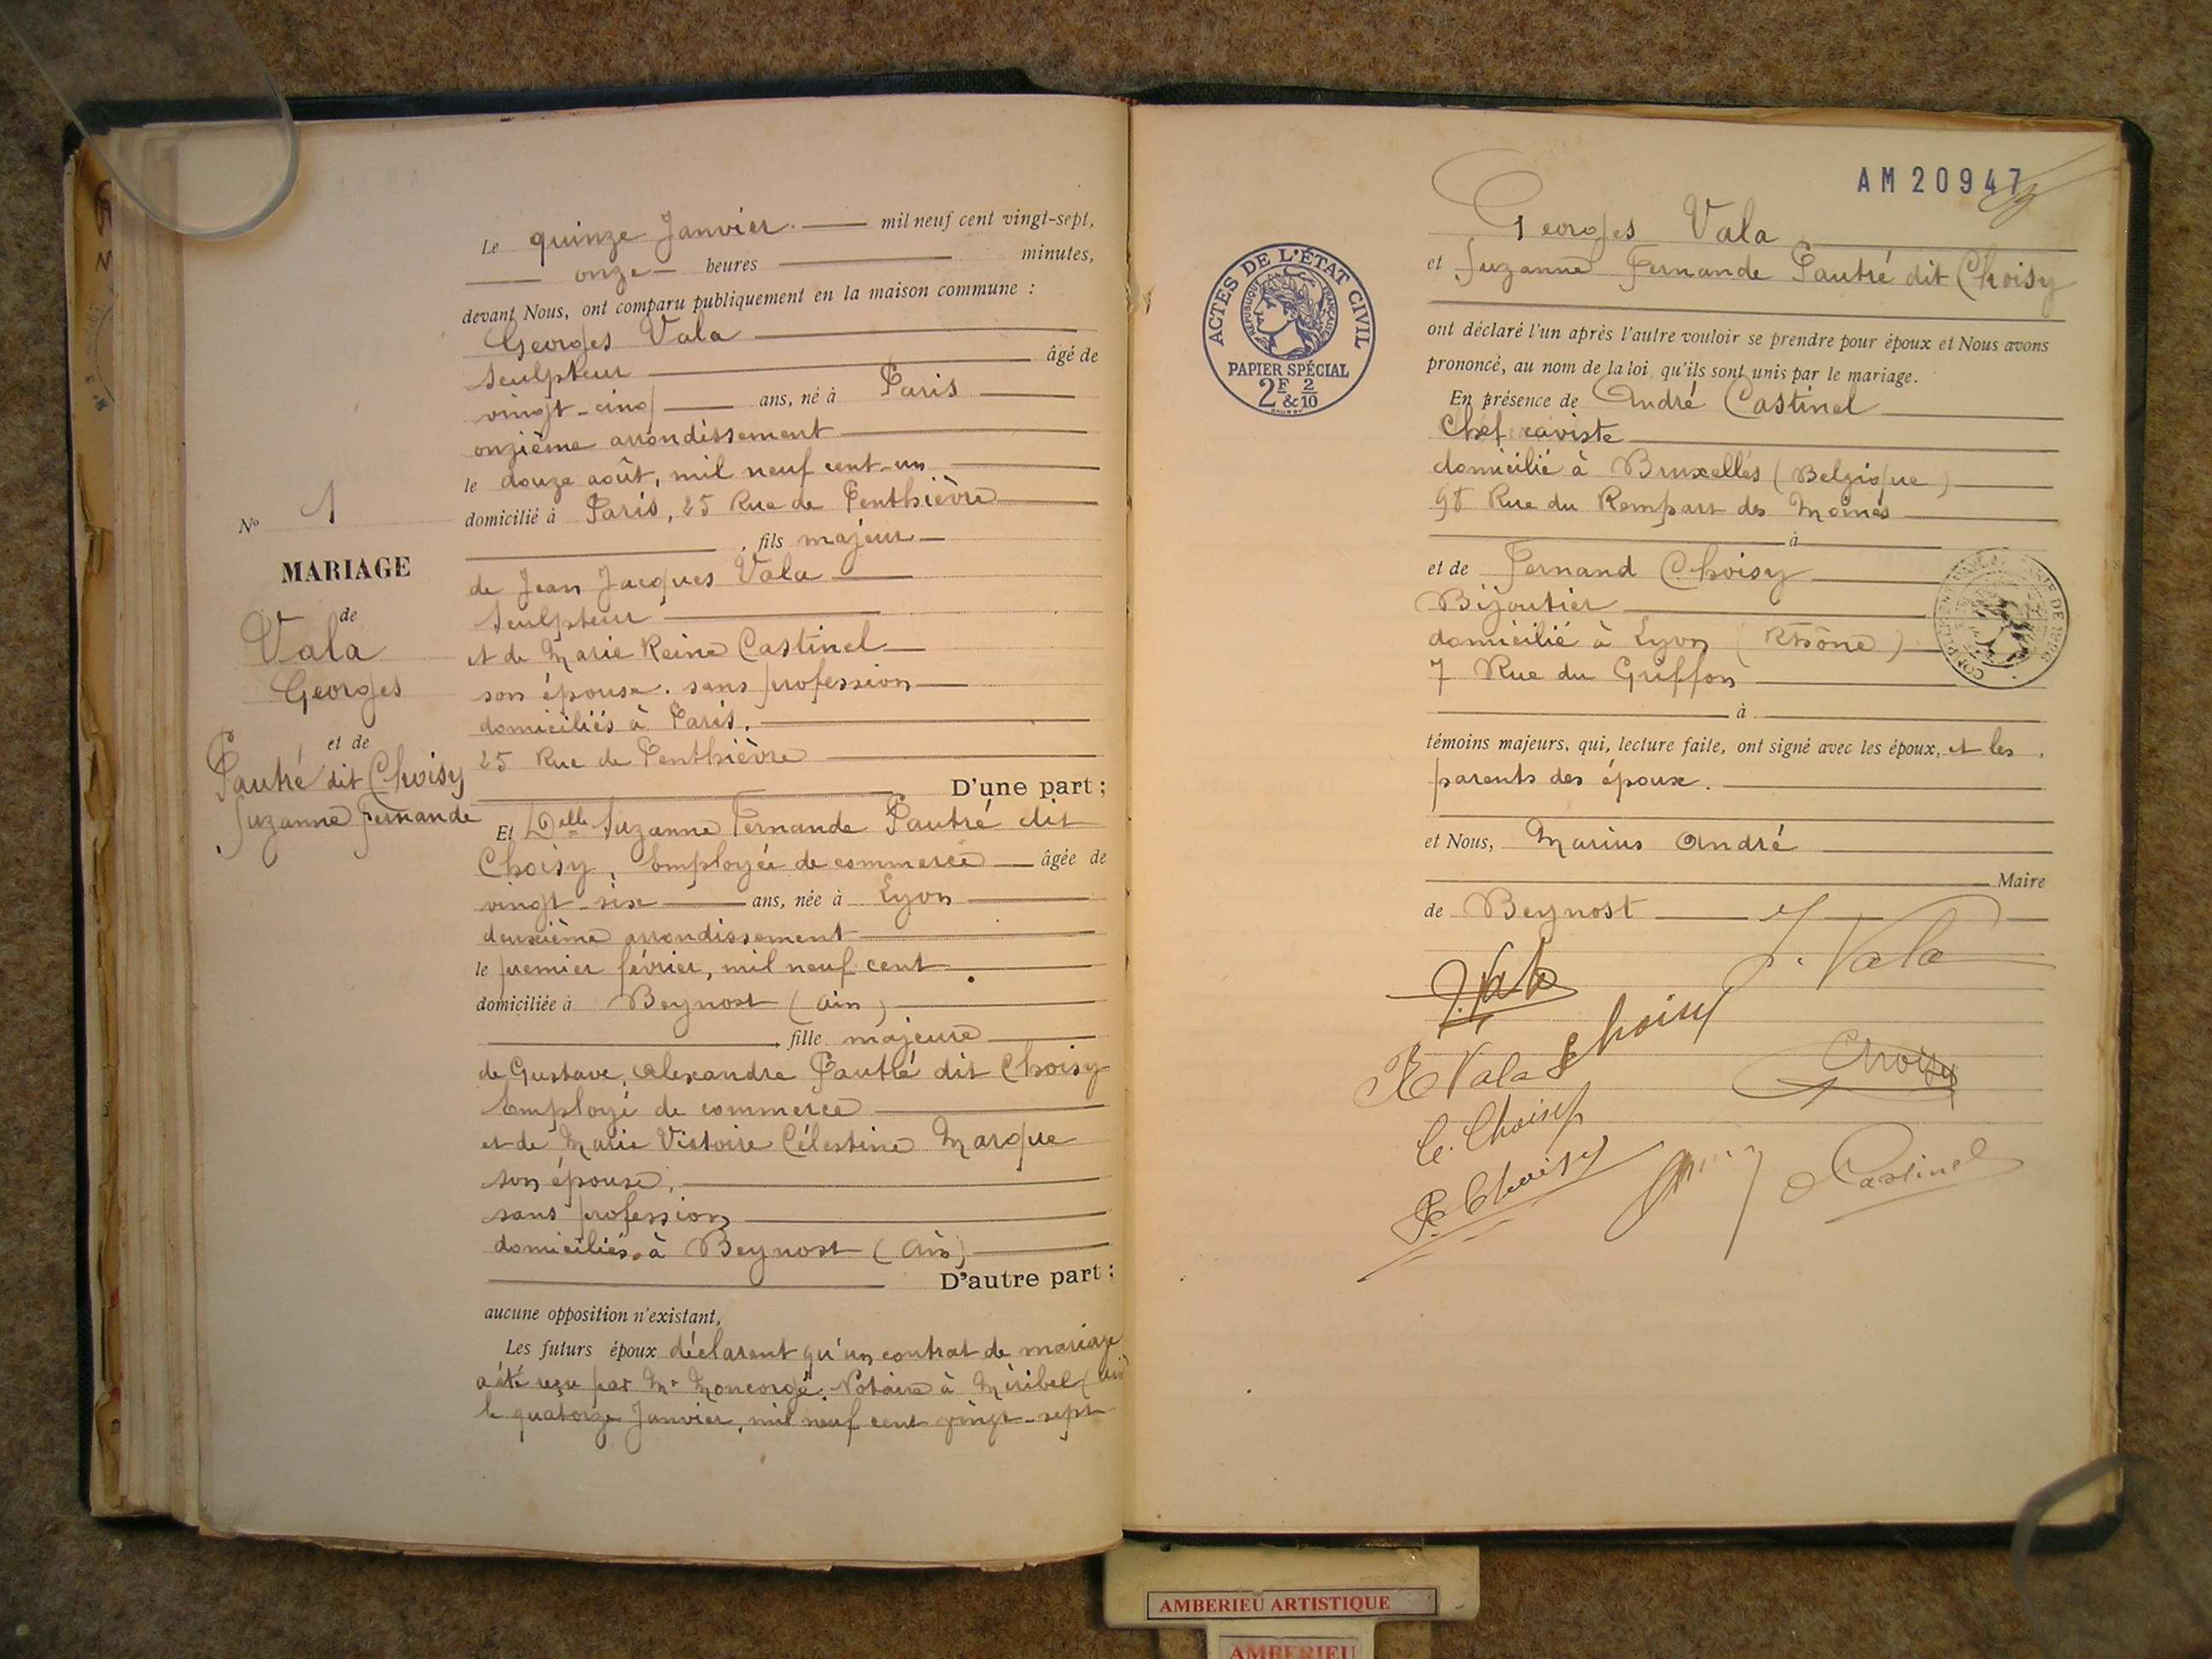 Le quinze Janvier. mil neuf cent vingt-sept,
onze heures minutes,
devant Nous, ont comparu publiquement en la maison commune :
Georges Vala
sculpteur âgé de
vingt-cinq ans, né à Paris
onzième arrondissement
le douze août, mil neuf cent-un
domicilié à Paris, 25 Rue de Penthièvre
, fils majeur
de Jean Jacques Vala
sculpteur
et de Marie Reine Castinel
son épouse. sans profession
domiciliés à Paris.
25 Rue de Penthièvre
D'une part ;
N° 1
MARIAGE
de
Vala
Georges
et de
Pautré dit Choisy
Suzanne Fernande
Et Delle Suzanne Fernande Pautré dit
Choisy, Employée de commerce âgée de
vingt-six ans, née à Lyon
deuxième arrondissement
le premier février, mil neuf cent
domiciliée à Beynost (Ain)
, fille majeure
de Gustave, Alexandre Pautré dit Choisy
Employé de commerce
et de Marie Victoire Célestine Marque
son épouse,
sans profession
domiciliés à Beynost (Ain)
D'autre part ;
aucune opposition n'existant,
Les futurs époux déclarent qu'un contrat de mariage
a été reçu par Mr Moncorgé, Notaire à Miribel (Ain)
le quatorze Janvier, mil neuf cent vingt-sept
AM 20947
Georges Vala
et Suzanne Fernande Pautré dit Choisy
ACTES DE L'ÉTAT CIVIL
RÉPUBLIQUE FRANÇAISE
PAPIER SPÉCIAL
2F & 2/10
ont déclaré l'un après l'autre vouloir se prendre pour époux et Nous avons
prononcé, au nom de la loi, qu'ils sont unis par le mariage.
En présence de André Castinel
Chef caviste
domicilié à Bruxelles (Belgique)
98 Rue du Rempart des Moines
à
et de Fernand Choisy
Bijoutier
domicilié à Lyon (Rhône)
7 Rue du Griffon
à
témoins majeurs, qui, lecture faite, ont signé avec les époux, et les
parents des époux.
et Nous, Marius André
Maire
de Beynost
G. Vala
J. Vala
R Vala
S Choisy
Choisy
C. Choisy
F. Choisy
A Castinel
AMBERIEU ARTISTIQUE
AMBERIEU